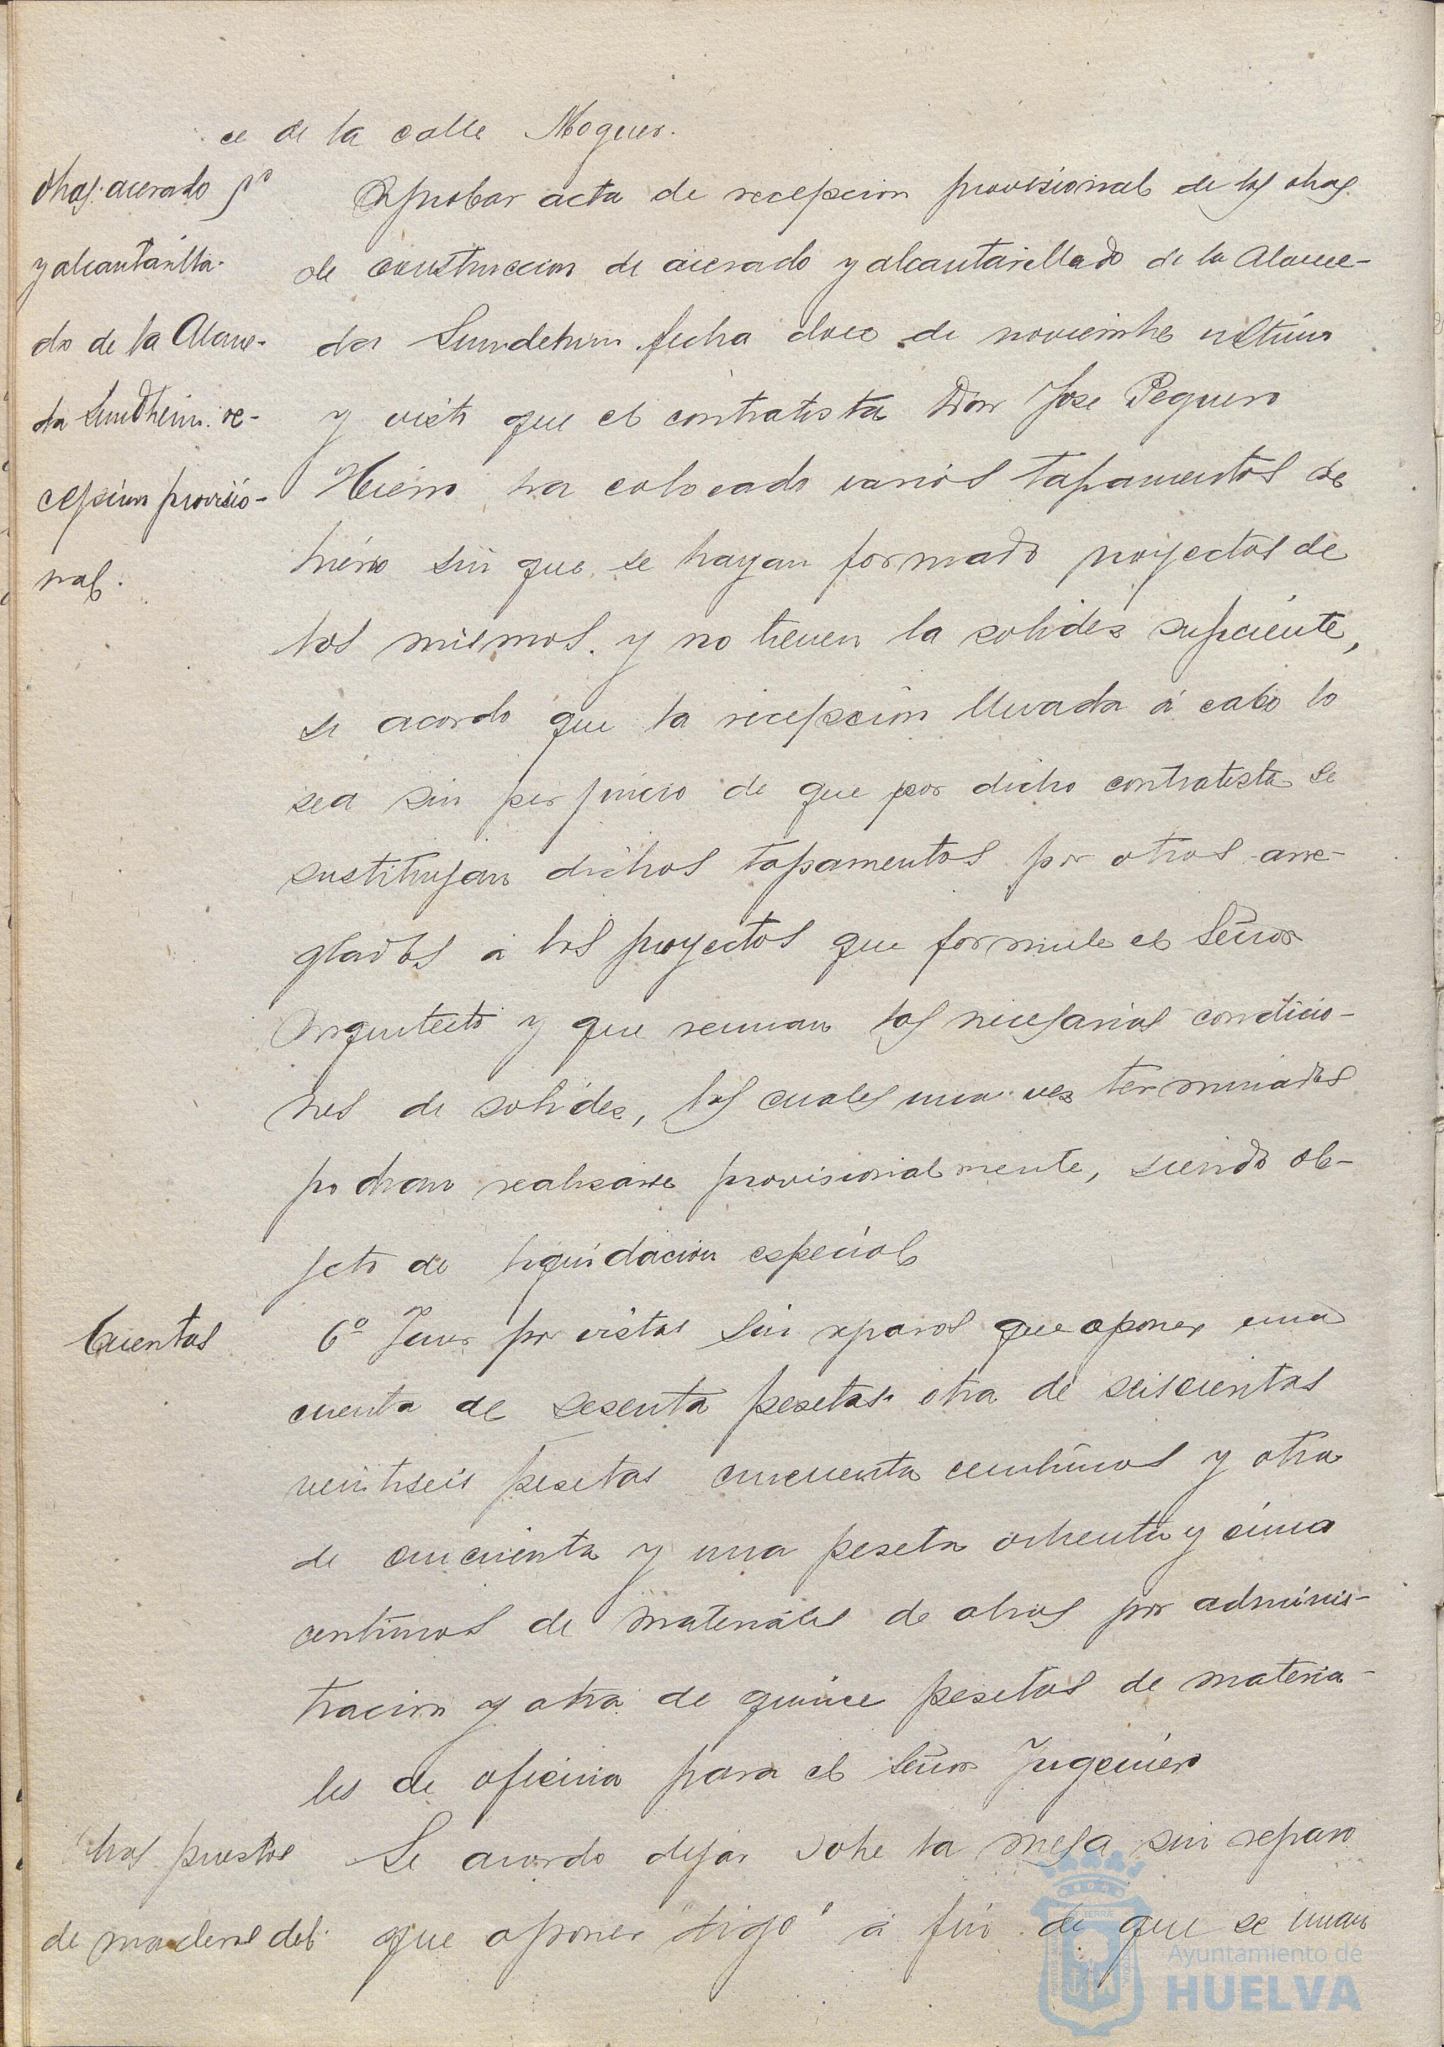 ce de la calle Moguer.
Obras acerado
y alcantarilla-
do de la Alame-
da Sundheim. re-
cepcion provisio-
nal.
Aprobar acta de recepcion provisional de las obras
de construccion de acerado y alcantarillado de la Alame-
da Sundehim fecha doce de noviembre ultimo
y visto que el contratista Don Jose Peguero
Hierro ha colocado varios tapamentos de
hierro sin que se hayan formado proyectos de
los mismos. y no tienen la solides suficiente,
se acordo que la recepcion llevada á cabo lo
sea sin perjuicio de que por dicho contratista se
sustituyan dichos tapamentos por otros arre-
glados á los proyectos que formule el Señor
Arquitecto y que reunan las necesarias condicio-
nes de solides, las cuales una ves terminados
podran realisarse provisionalmente, siendo ob-
jeto de liquidacion especial
Cuentas
6º Tener por vistas sin reparos que oponer una
cuenta de sesenta pesetas otra de seiscientas
veintiseis pesetas cincuenta centimos y otra
de cincuenta y una peseta ochenta y cinco
centimos de materiales de obras por adminis-
tracion y otra de quince pesetas de materia-
les de oficina para el Señor Ingeniero
Obras puestos
de maderas del
Se acordo dejar sobre la mesa sin reparo
que oponer "digo" á fin de que se unan
Ayuntamiento de
HUELVA